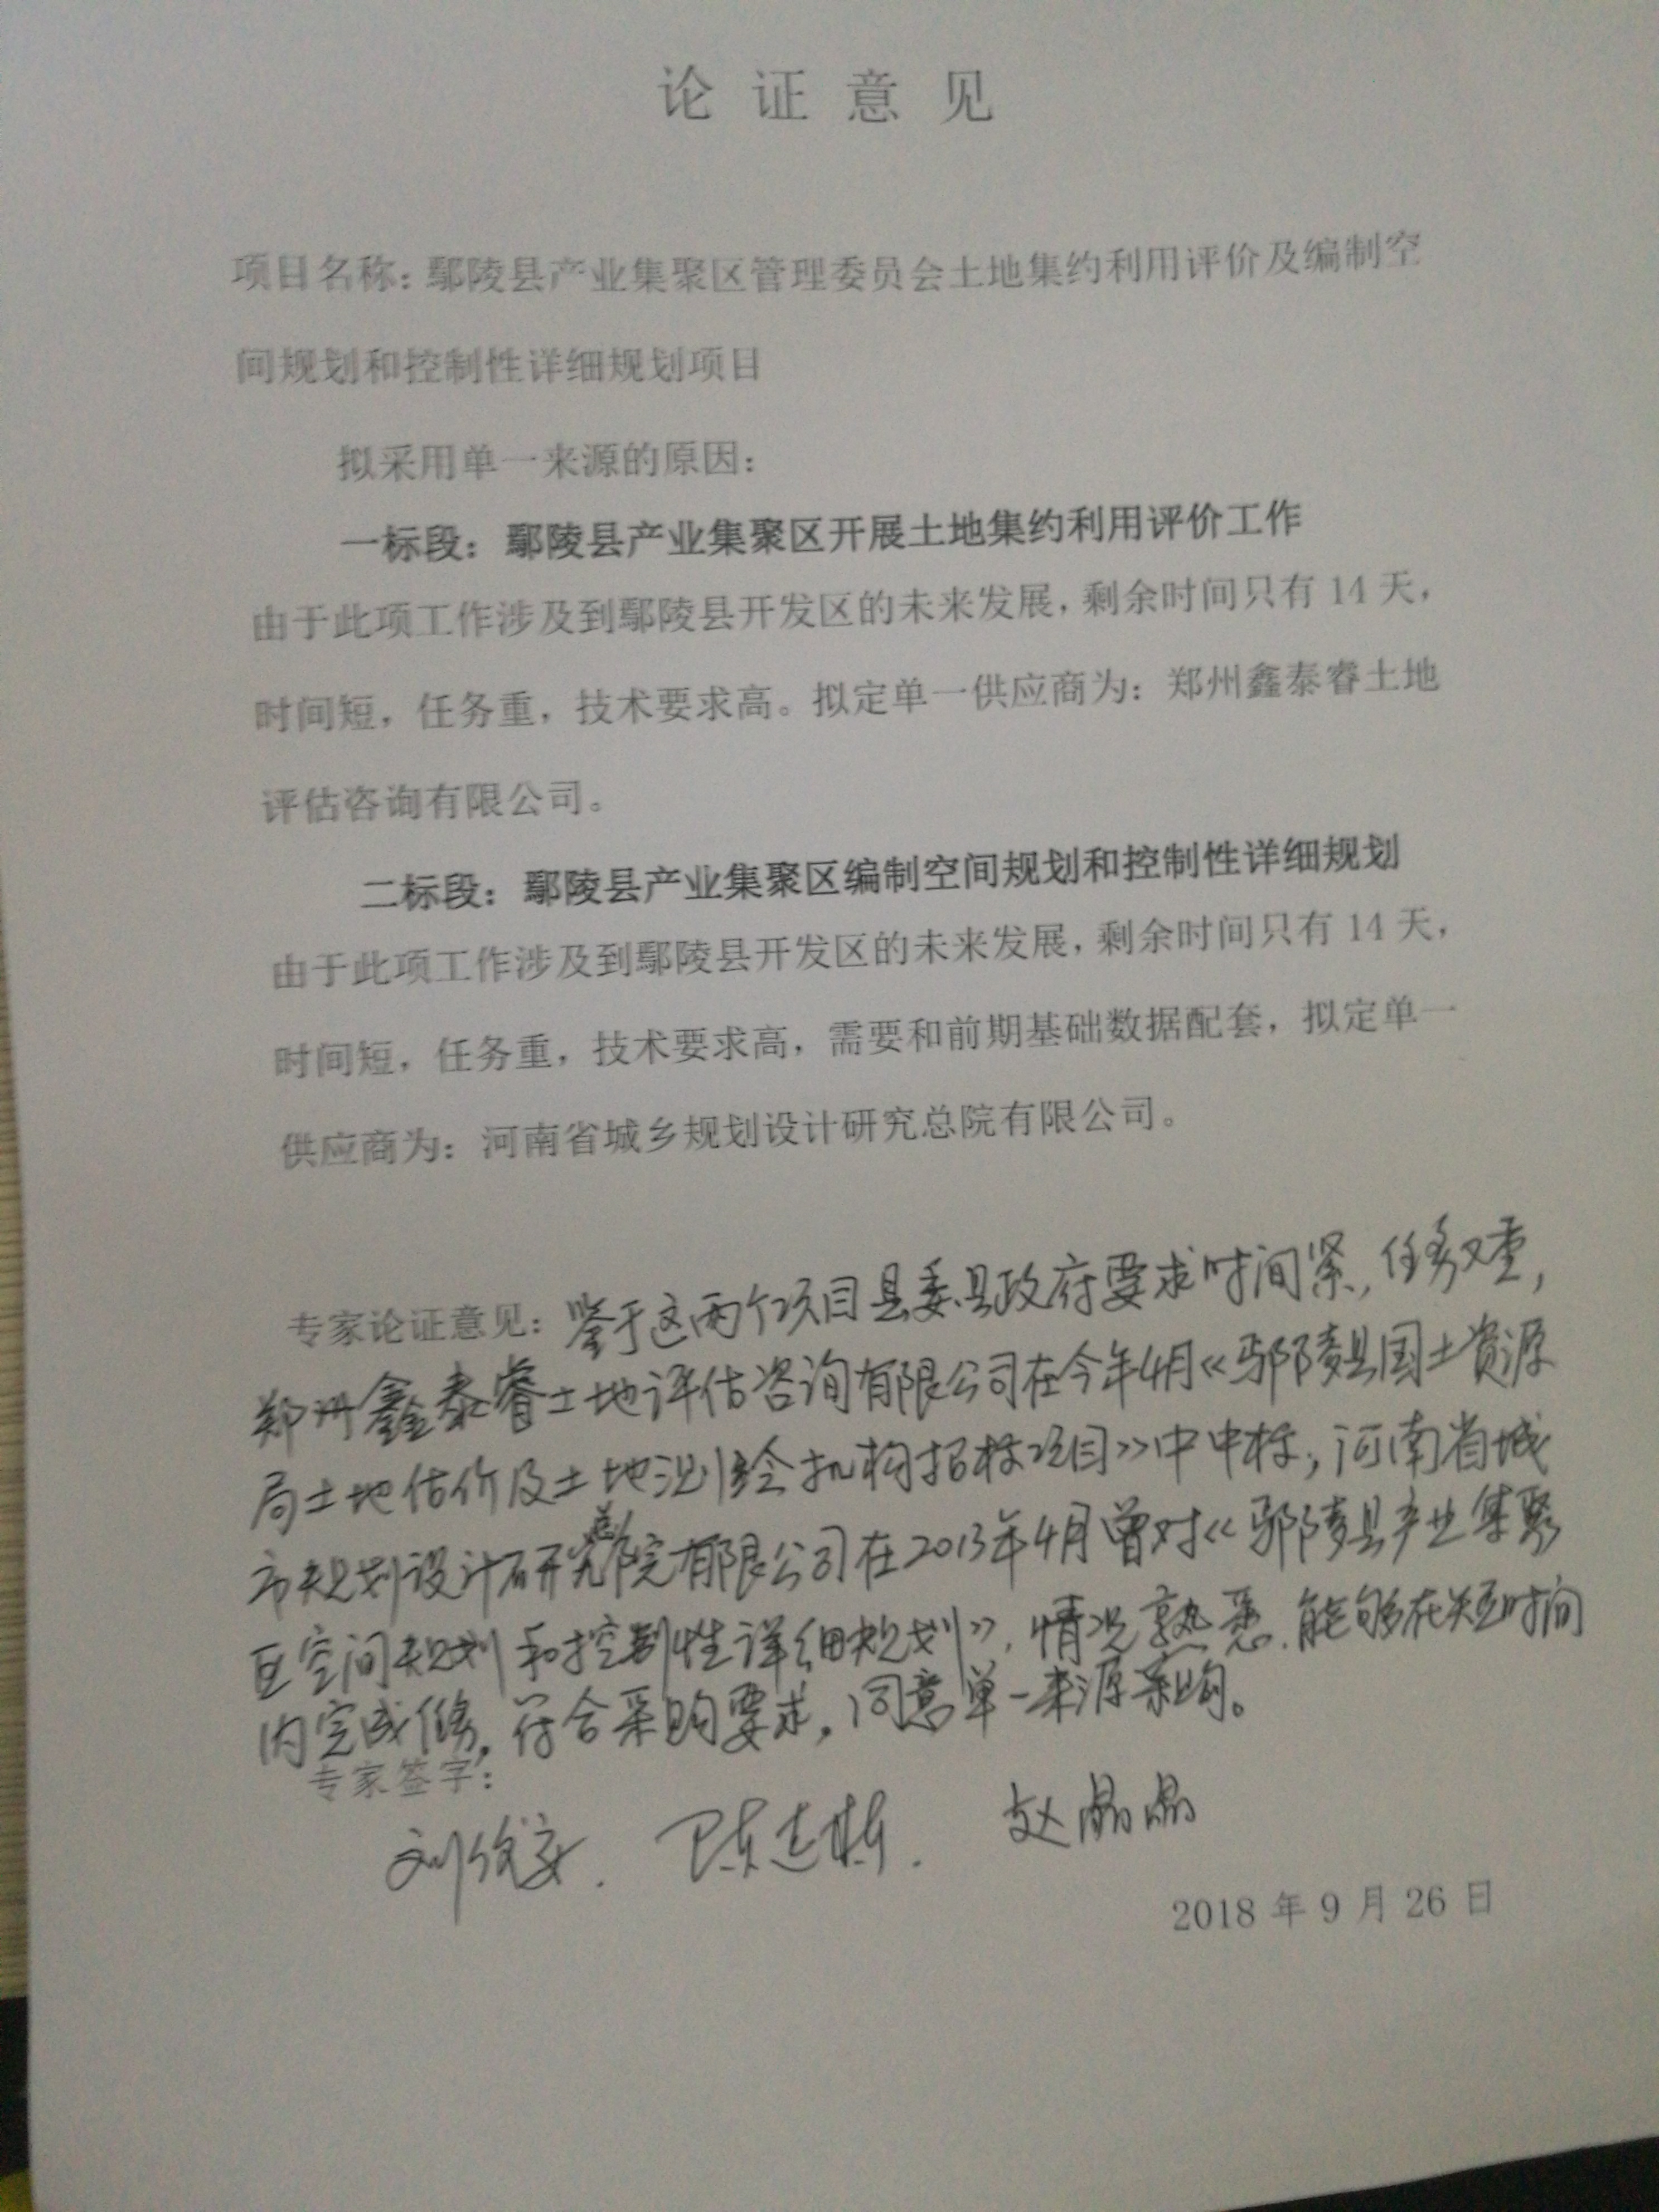 论证意见
项目名称：鄢陵县产业集聚区管理委员会土地集约利用评价及编制空
间规划和控制性详细规划项目
拟采用单一来源的原因：
一标段：鄢陵县产业集聚区开展土地集约利用评价工作
由于此项工作涉及到鄢陵县开发区的未来发展，剩余时间只有 14 天，
时间短，任务重，技术要求高。拟定单一供应商为：郑州鑫泰睿土地
评估咨询有限公司。
二标段：鄢陵县产业集聚区编制空间规划和控制性详细规划
由于此项工作涉及到鄢陵县开发区的未来发展，剩余时间只有 14 天，
时间短，任务重，技术要求高，需要和前期基础数据配套，拟定单一
供应商为：河南省城乡规划设计研究总院有限公司。
专家论证意见：鉴于这两个项目县委县政府要求时间紧，任务又重，
郑州鑫泰睿土地评估咨询有限公司在今年4月《鄢陵县国土资源
局土地估价及土地测绘机构招标项目》中中标，河南省城
市规划设计研究总院有限公司在2013年4月曾对《鄢陵县产业集聚
区空间规划和控制性详细规划》，情况熟悉，能够在短时间
内完成任务，符合采购要求，同意单一来源采购。
专家签字：
赵晶晶
2018 年 9 月 26 日